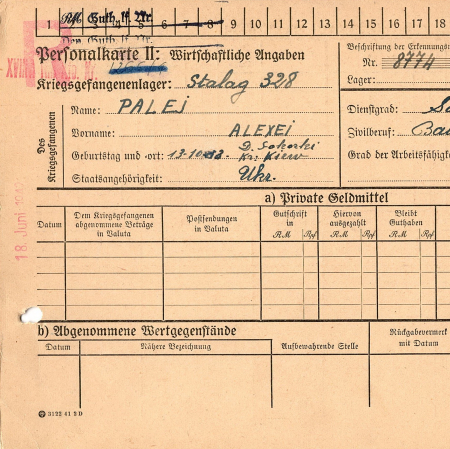 1 RM Guth. lt. Nr. 6 7 8 9 10 11 12 13 14 15 16 17 18
Personalkarte II: Wirtschaftliche Angaben
Beschriftung der Erkennungs
Nr. 8774
Kriegsgefangenenlager: Stalag 328
Lager:
Des Kriegsgefangenen
Name: PALEJ
Dienstgrad:
Vorname: ALEXEI
Zivilberuf:
Geburtstag und -ort: D. Sokorki
Kr. Kiew
Grad der Arbeitsfähigk
Staatsangehörigkeit: Ukr.
18. Juni
a) Private Geldmittel
Datum
Dem Kriegsgefangenen abgenommene Beträge in Valuta
Postsendungen in Valuta
Gutschrift in
RM Rpf
Hiervon ausgezahlt
RM Rpf
Bleibt Guthaben
RM Rpf
Datum
b) Abgenommene Wertgegenstände
Datum
Nähere Bezeichnung
Aufbewahrende Stelle
Rückgabevermerk
mit Datum
3122 41 2 D